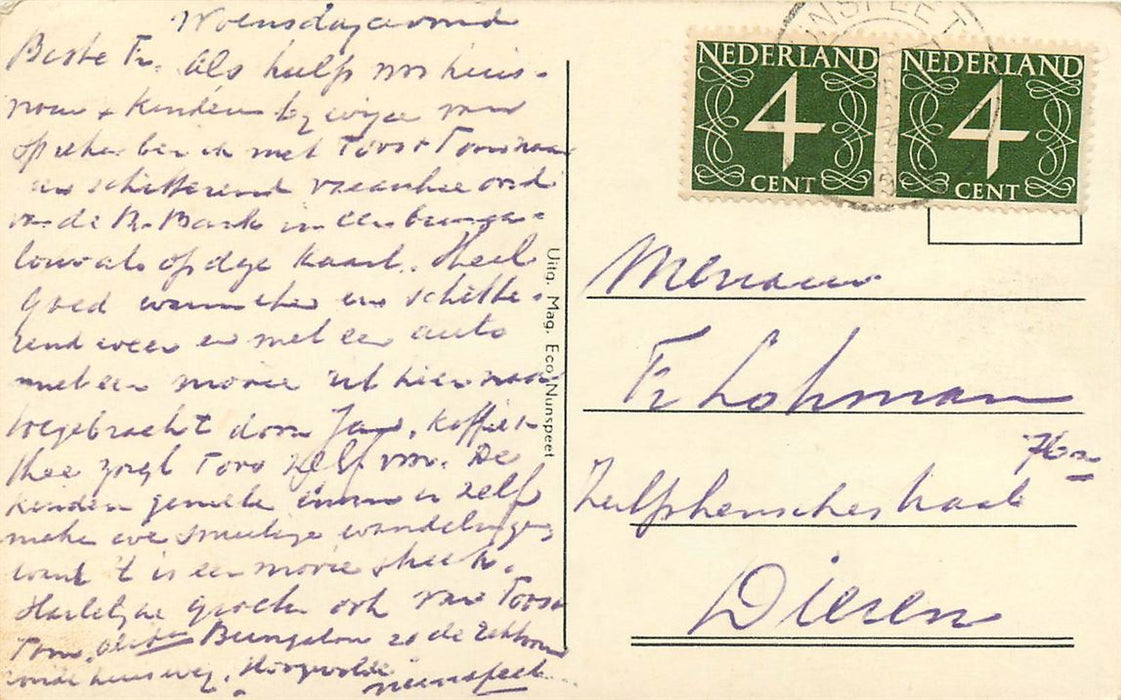 Woensdagavond
Beste Fr. Als hulp v. huis-
vrouw + kinderen bij wijze van
ben ik met Toos + Tom naar
een schitterend vacantieoord
v. de R. Bank in een bunga-
low als op dze kaart. Heel
goed en schitte-
rend weer en met een auto
met een mooie rit hier naar
toegebracht door Jan, koffie +
thee zorgt Toos zelf voor. De
kinderen genieten en zelf
maken we wandelingen
want 't is een mooie streek.
Hartelijke groeten ook van Toos +
Tom. Bungalow 20 de
Nunspeet
Uitg. Mag. Eco, Nunspeet
NUNSPEET
NEDERLAND
4
CENT
NEDERLAND
4
CENT
Mevrouw
Fr Lohman
76
Zutphenschestraat
Dieren